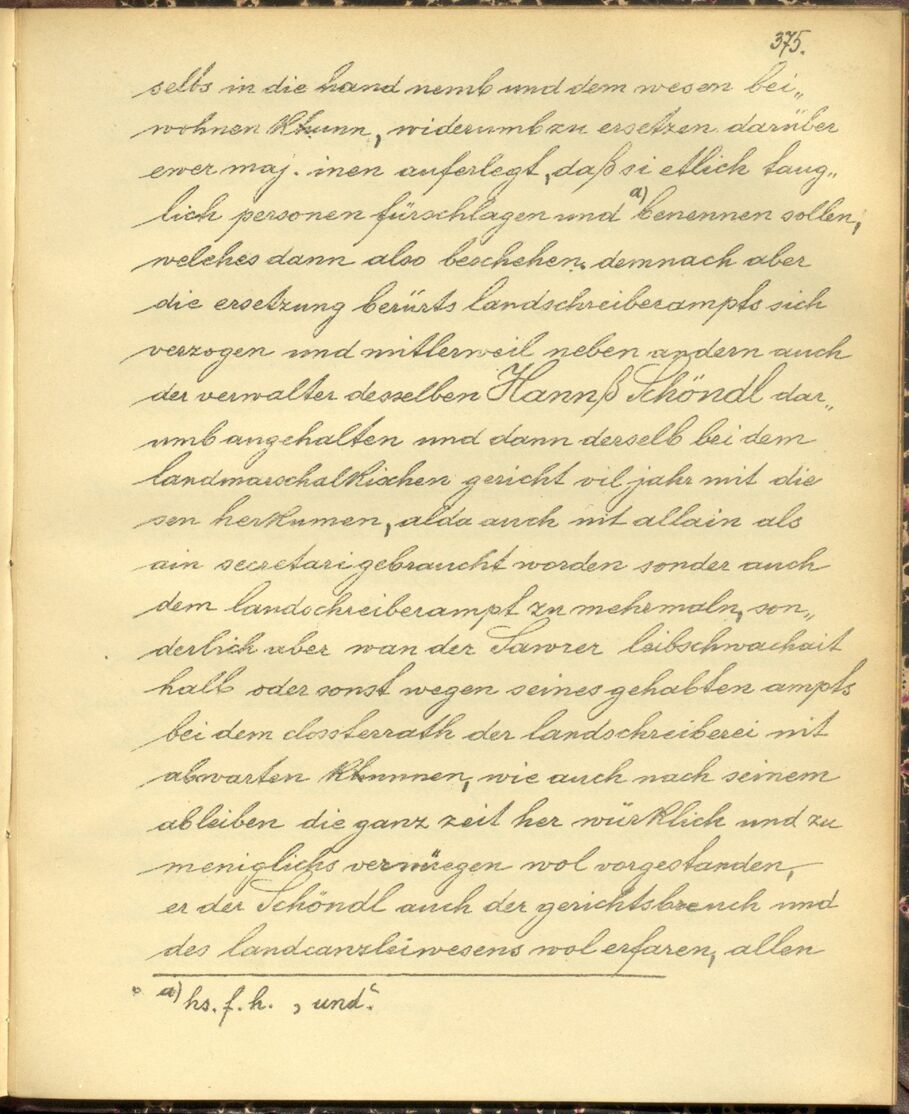 375.
selbs in die hand nemb und dem wesen bei„
wohnen khunn, widerumb zu ersetzen darüber
ewer maj. inen auferlegt, daß si etlich taug„
lich personen fürschlagen und a) benennen sollen,
welches dann also beschehen. demnach aber
die ersetzung berürts landschreiberampts sich
verzogen und mitlerweil neben andern auch
der verwalter desselben Hannß Schöndl dar„
umb angehalten und dann derselb bei dem
landmarschalkischen gericht vil jahr mit die
sen herkumen, alda auch nit allain als
ain secretari gebraucht worden sonder auch
dem landschreiberampt zu mehrmaln, son„
derlich aber wan der Sawrer leibschwachait
halb oder sonst wegen seines gehabten ampts
bei dem clossterrath der landschreiberei nit
abwarten khunnen, wie auch nach seinem
ableiben die ganz zeit her würklich und zu
meniglichs vernüegen wol vorgestanden,
er der Schöndl auch der gerichtsbreuch und
des landcanzleiwesens wol erfaren, allen
a) hs. f. h. „und“.